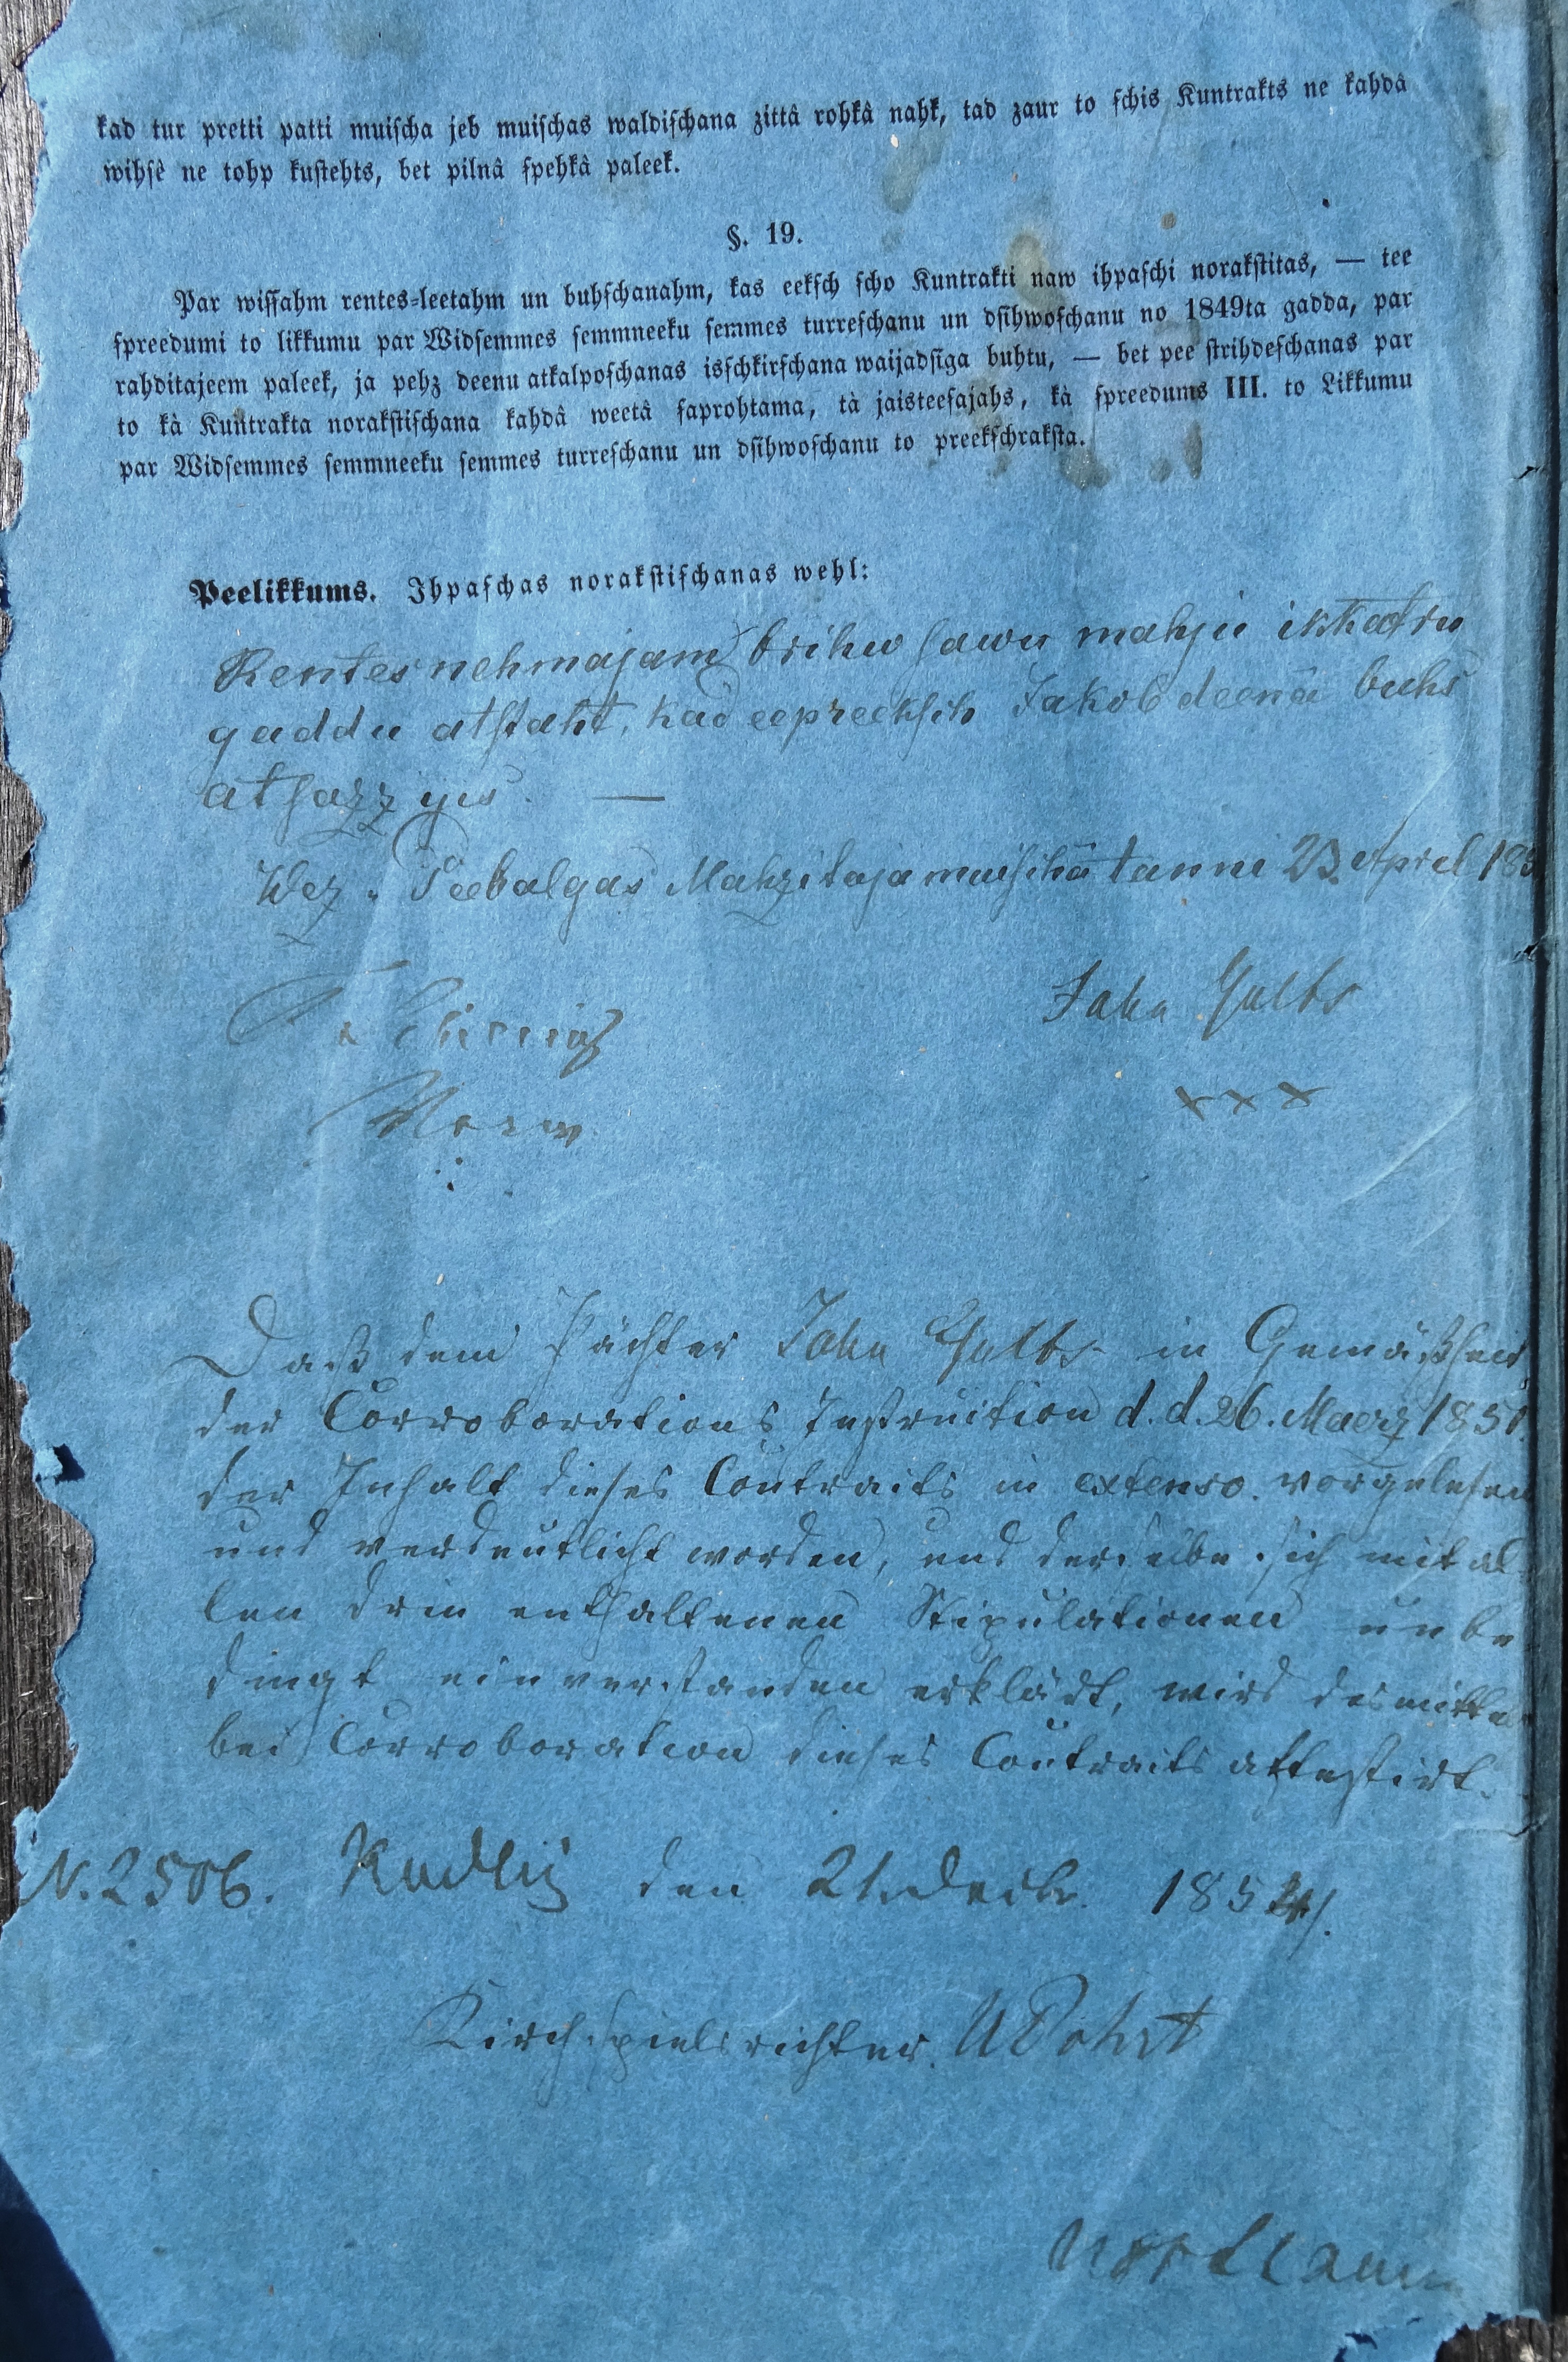 kad tur pretti patti muischa jeb muischas waldischana zittâ rohkâ nahk, tad zaur to schis Kuntrakts ne kahdâ
wihsê ne tohp kustehts, bet pilnâ spehkâ paleek.
§. 19.
Par wissahm rentes-leetahm un buhschanahm, kas eeksch scho Kuntrakti naw ihpaschi norakstitas, — tee
spreedumi to likkumu par Widsemmes semmneeku semmes turreschanu un dsihwoschanu no 1849ta gadda, par
rahditajeem paleek, ja pehz deenu atkalposchanas isschkirschana waijadsiga buhtu, — bet pee strihdeschanas par
to kà Kuntrakta norakstischana kahdâ weetâ saprohtama, tà jaisteesajahs, kà spreedums III. to Likkumu
par Widsemmes semmneeku semmes turreschanu un dsihwoschanu to preekschraksta.
Peelikkums. Ihpaschas norakstischanas wehl:
Rentesnehmajam brihw sawu mahju ikkatru
gaddu atstaht, kad eepreeksch Jakob deenâ buhs
atsazzijis. —
Wez-Peebalgas Mahzitaja muischâ tanni 23. April 185
Jahn Gulbs
x x x
Daß dem Pächter Jahn Gulbs in Gemäßheit
der Corroborations Instruction d. d. 26. Maerz 1851.
der Inhalt dieses Contracts in extenso vorgelesen
und verdeutlicht worden, und derselbe sich mit al-
len drin enthaltenen Stipulationen unbe-
dingt einverstanden erklärt, wird desmittelst
bei Corroboration dieses Contracts attestirt.
N. 2506. den 21. Decbr. 185
Kirchspielsrichter